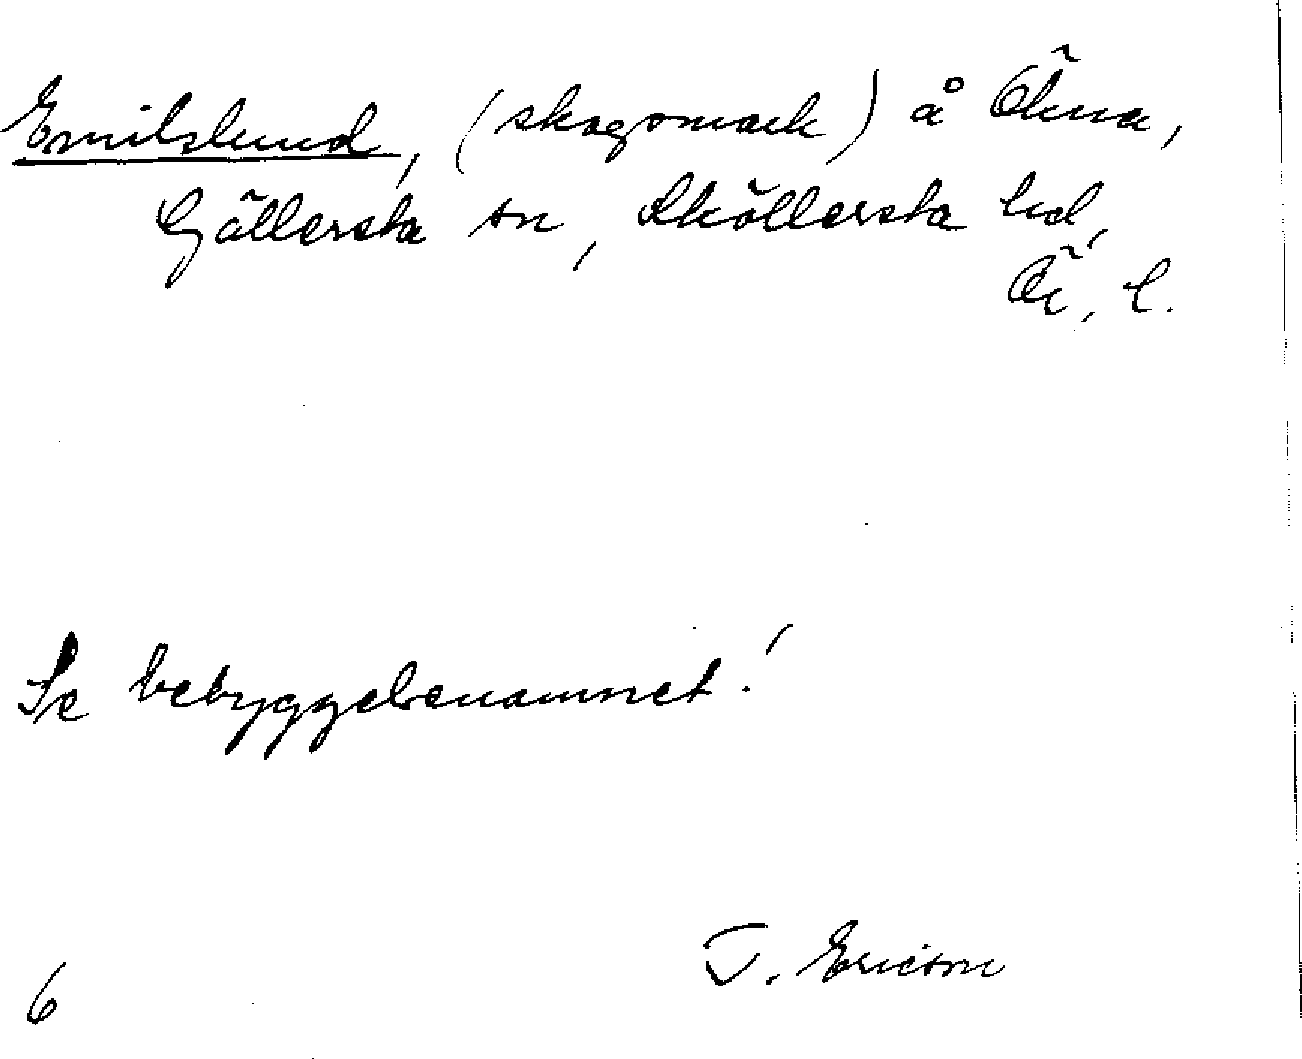 Emilslund, (skogsmark) å Ökna,
Gällersta sn, Sköllersta hd,
Ör. l.
Se bebyggelsenamnet!
T. Ericson
6